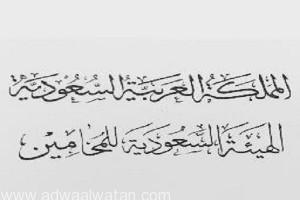 المملكة العربية السعودية
الهيئة السعودية للمحامين
www.adwaalwatan.com